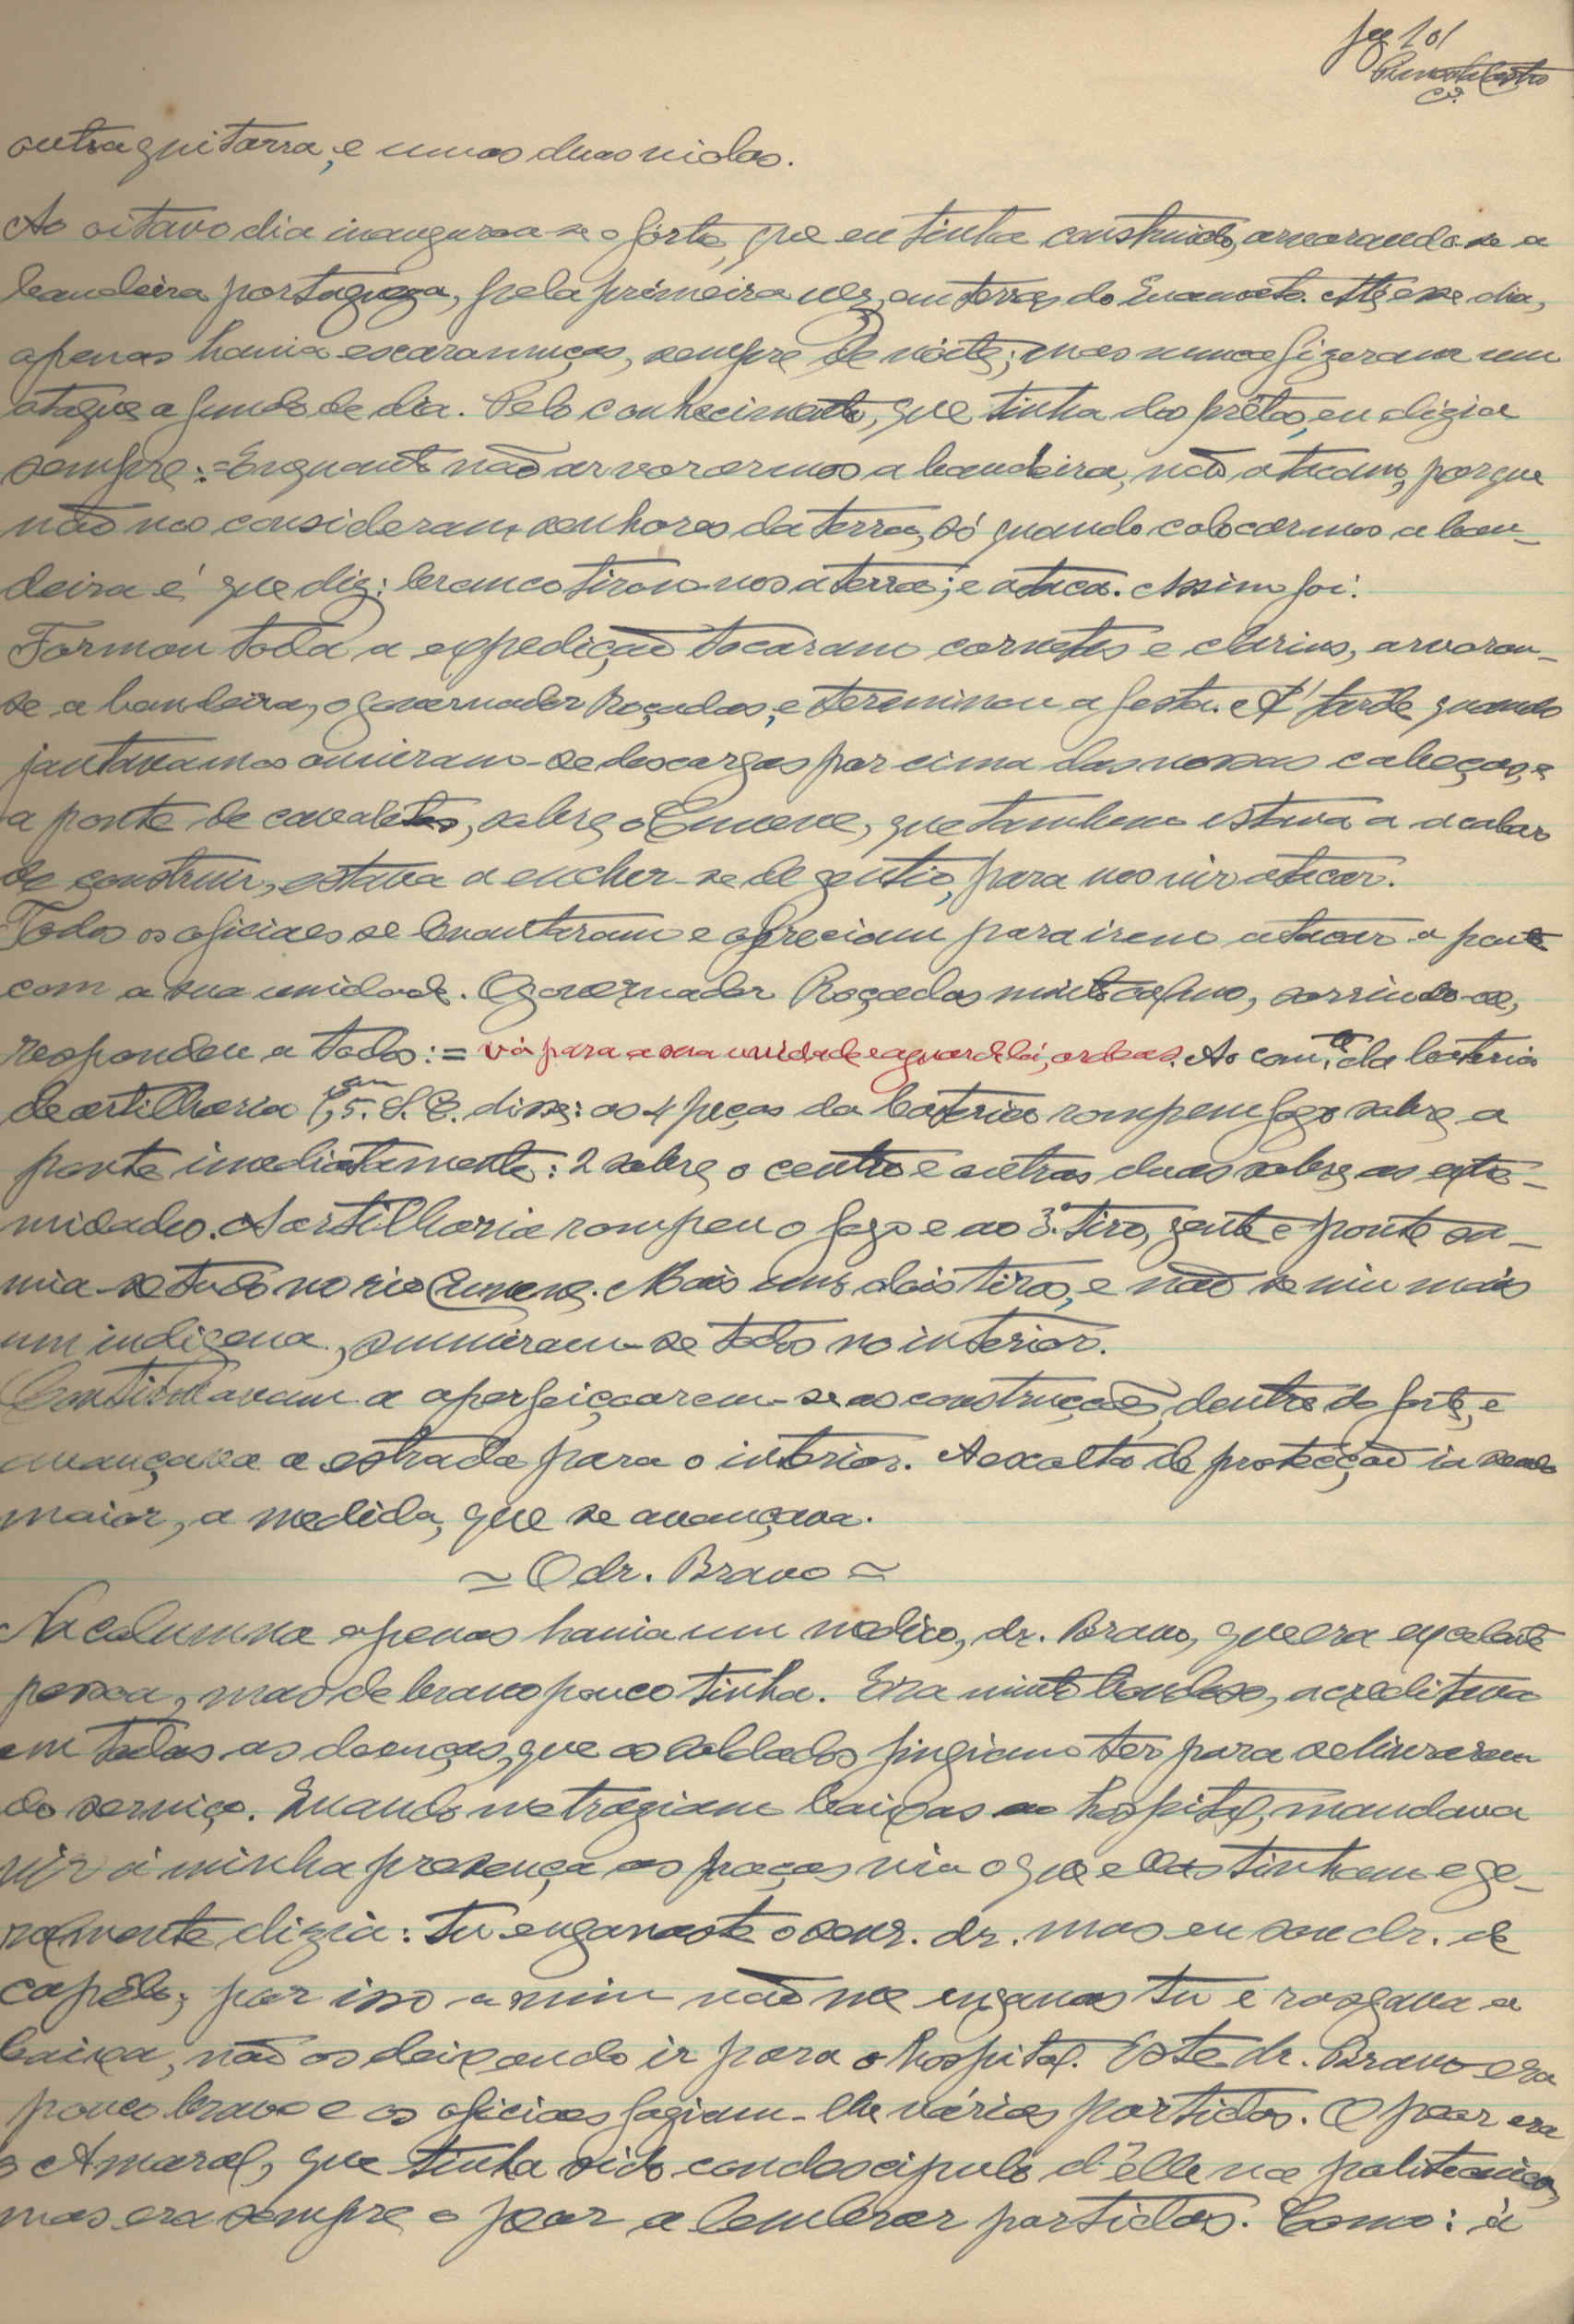 fls 101
outra guitarra, e umas duas violas.
Ao oitavo dia inaugurou-se o forte, que eu tinha construido, arvorando-se a
bandeira portugueza, pela primeira vez, em terras do Cuamato. Até esse dia,
apenas havia escaramuças, sempre de nóite; mas nunca fizeram um
ataque a fundo de dia. Pelo conhecimento, que tinha dos prêtos, eu dizia
sempre: =Enquanto não arvorarmos a bandeira, não atacam, porque
não nos consideram senhores da terra, só quando colocarmos a ban-
deira é que diz: branco tirou-nos a terra; e ataca. Assim foi.
Formou toda a expedição tocaram cornetas e clarins, arvorou-
se a bandeira, o governador Roçadas, e terminou a festa. A' tarde quando
jantavamos ouviram-se descargas por cima das nossas cabeças, e
a ponte de cavaletes, sobre o Cunene, que tambem estava a acabar
de construir, estava a encher-se de gentio, para nos vir atacar.
Todos os oficiaes se levantaram e ofreciam para irem atacar a ponte
com a sua unidade. O governador Roçadas muito calmo, sorrindo-se,
respondeu a todos: = vá para a sua unidade e aguarde lá, ordens. Ao comte. da bateria
de artilharia 7,5 cm. S.C. disse: as 4 peças da bateria rompem fogo sobre a
ponte imediatamente: 2 sobre o centro e outras duas sobre as extre-
midades. A artilharia rompeu o fogo e ao 3.º tiro, gente e ponte su-
mia-se tudo no rio Cunene. Mais uns dois tiros, e não se viu mais
um indigena, sumiram-se todos no interior.
Continuavam a aperfeiçoarem-se as construções, dentro do forte, e
avançava a estrada para o interior. A escolta de protecção ia sendo
maior, a medida, que se avançava.
= O dr. Bravo =
Na columna apenas havia um medico, dr. Bravo, que era excelente
pessoa, mas de bravo pouco tinha. Era muito bondoso, acreditava
em todas as doenças, que os soldados fingiam ter para se livrarem
do serviço. Quando me traziam baixas ao hospital, mandava
vir á minha presença as praças via o que ellas tinham e ge-
ralmente dizia: tu enganaste o senr. dr. mas eu sou dr. de
capêlo; por isso a mim não me enganas tu e rasgava a
baixa, não os deixando ir para o hospital. Este dr. Bravo era
pouco bravo e os oficiaes faziam-lhe várias partidas. O peor era
o Amaral, que tinha sido condiscipulo d'elle na politecnica,
mas era sempre o peor a lembrar partidas. Como: á